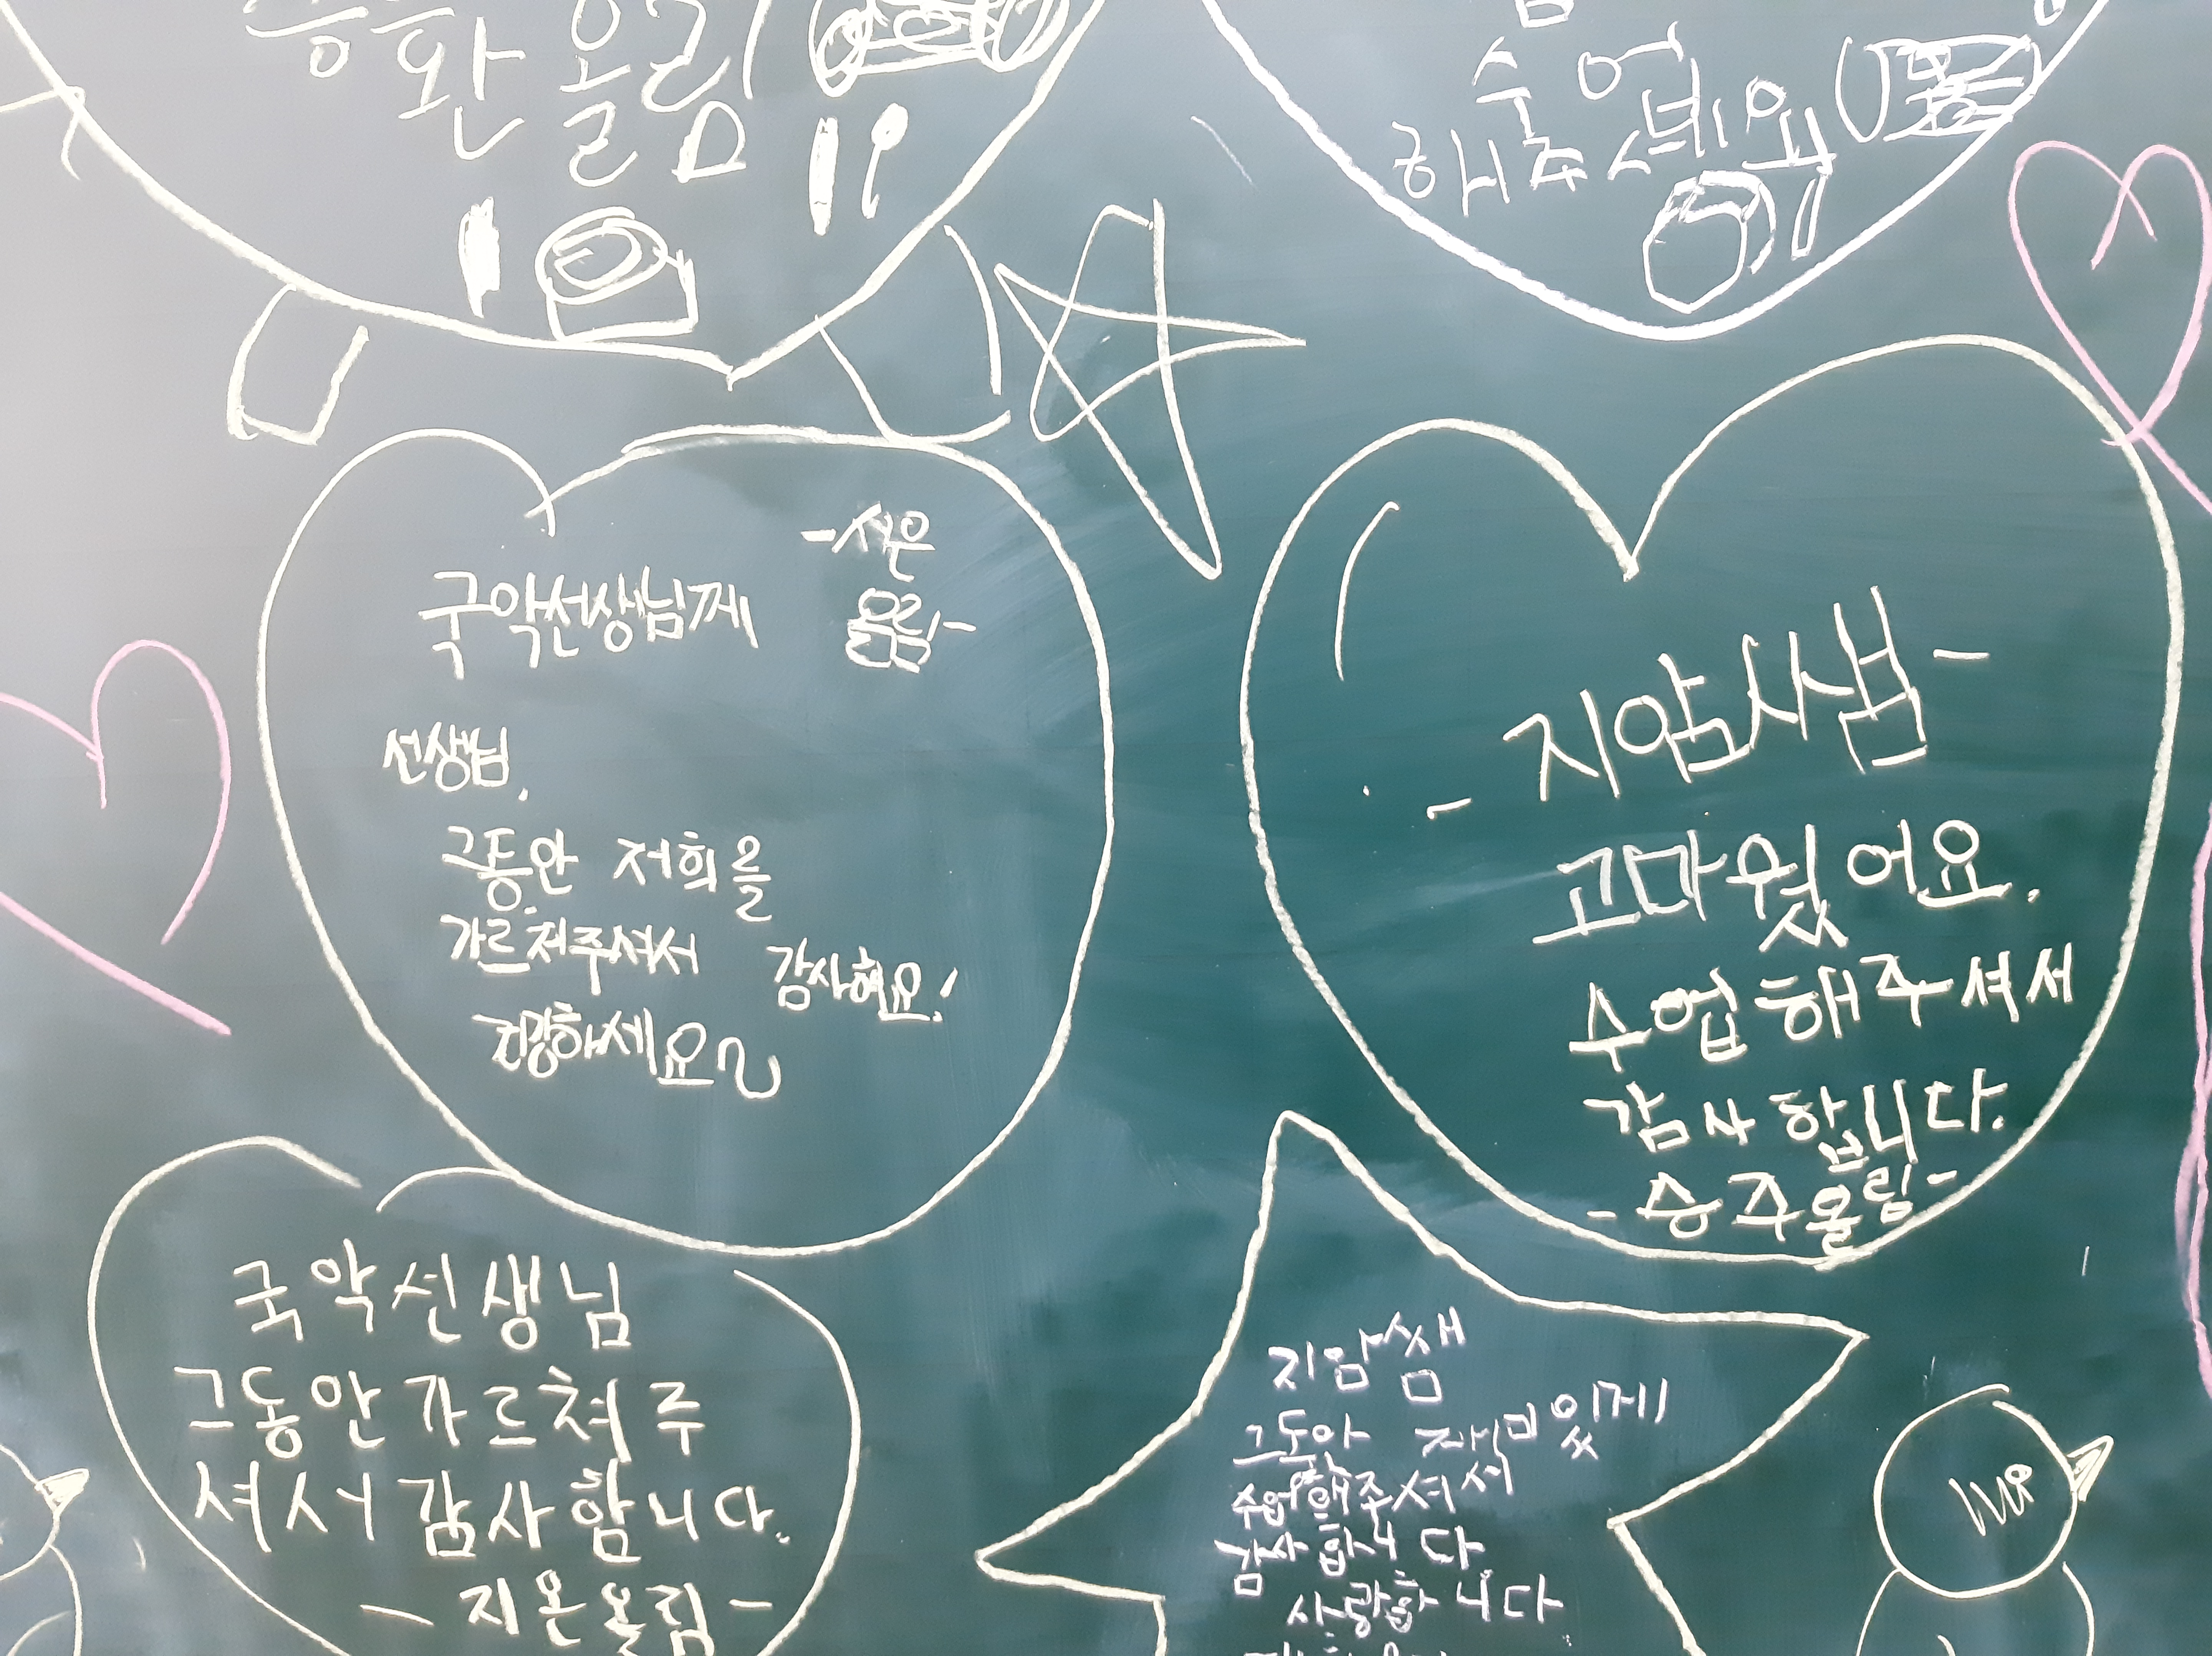 승환 올림
수업
해주세요
-서은
올림-
국악선생님께
선생님,
그동안 저희를
가르쳐주셔서 감사해요!
건강하세요
- 지암사샘 -
고마웠어요.
수업해주셔서
감사합니다.
- 승주올림 -
국악선생님
그동안가르쳐주
셔서감사합니다.
- 지온올림 -
지암쌤
그동안 재미있게
수업해주셔서
감사합니다
사랑합니다